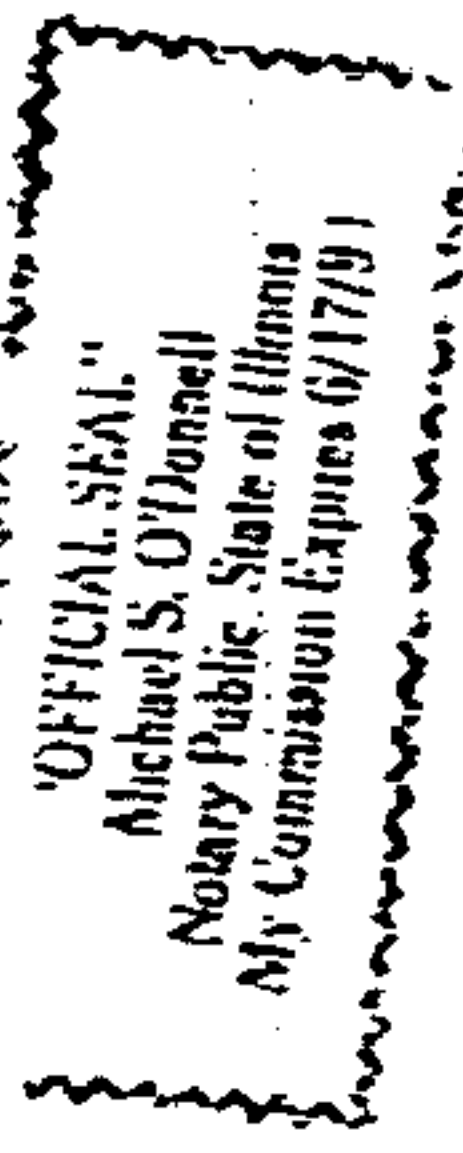 "OFFICIAL SEAL"
Michael S. O'Donnell
Notary Public, State of Illinois
My Commission Expires 6/17/91